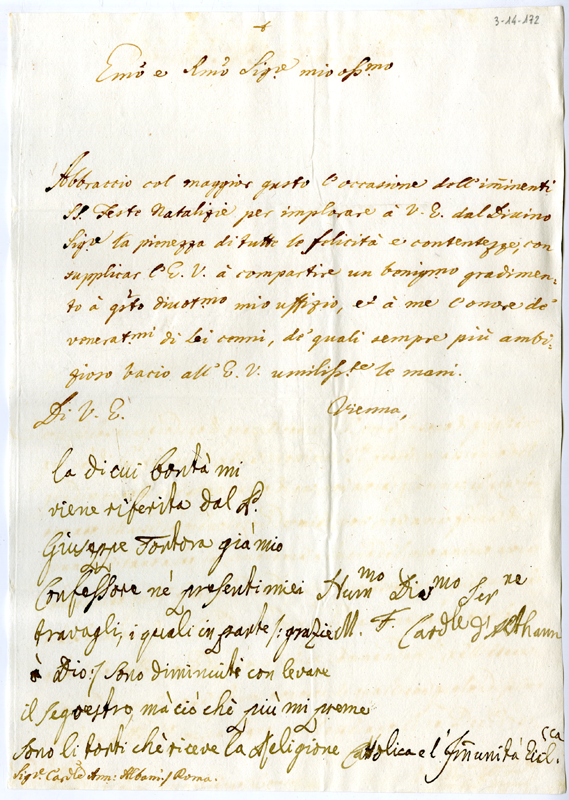 3-14-172
Emo e Rmo Sigre mio ossmo
Abbraccio col maggior gusto l'occasione dell'iminenti
SS. Feste Natalizie per implorare à V. E. dal Divino
Sigre la pienezza di tutte le felicità e contentezze, con
supplicar l'E. V. à compartire un benigmo gradimen-
to à qsto divotmo mio uffizio, et à me l'onore de'
veneratmi di Lei cenni, de' quali sempre più ambi-
zioso bacio all'E. V. umilisste le mani.
Di V. E. Vienna,
la di cui bontà mi
viene riferita dal P.
Giuseppe Tortora già mio
Confessore né presenti miei Hummo Divmo Serre
travagli, i quali in parte /: grazie M. F. Cardle d'Althann
à Dio :/ sono diminuiti con levare
il seqvestro, mà ciò chè più mi preme
sono li torti chè riceve la Religione Cattolica e l'Imunità Eccl.ca
Sigre Cardle Ann: Albani / Roma.